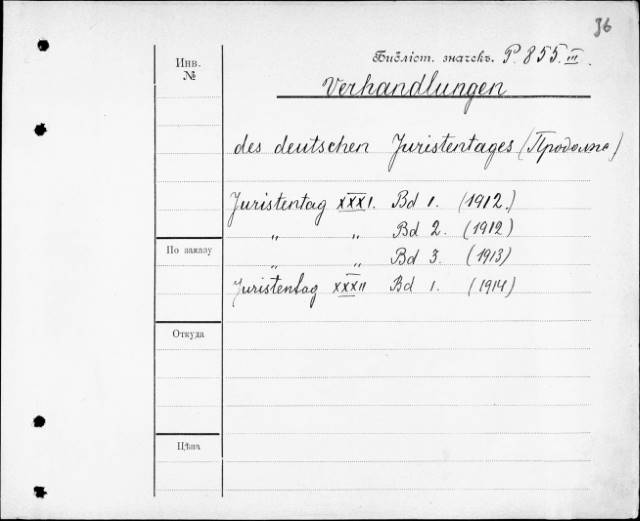 36
Инв.
№
Библіот. значекъ. P. 855. III.
Verhandlungen
des deutschen Juristentages (Продолже)
Juristentag XXXI. Bd 1. (1912.)
„ „ Bd 2. (1912)
По заказу
„ „ Bd 3. (1913)
Juristentag XXXII Bd 1. (1914)
Откуда
Цѣна